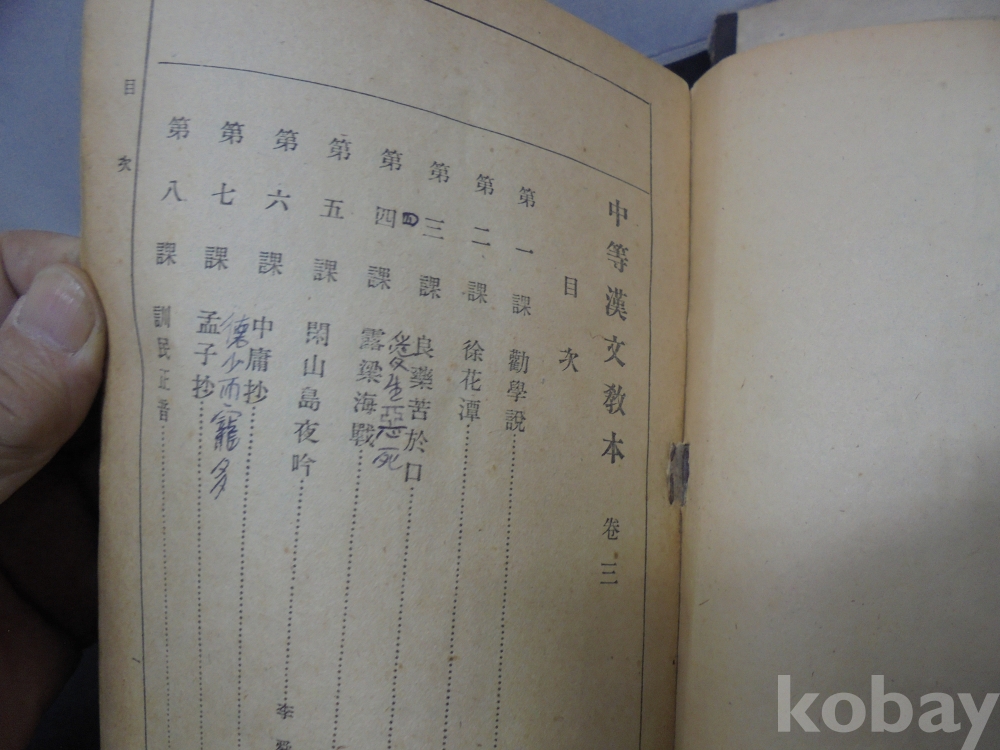 中等漢文敎本 卷三
目次
第一課 勸學說
第二課 徐花潭
第三課 良藥苦於口
四 愛生惡死
第四課 露梁海戰
第五課 閑山島夜吟 李
第六課 中庸抄
德少而寵多
第七課 孟子抄
第八課 訓民正音
目次
kobay